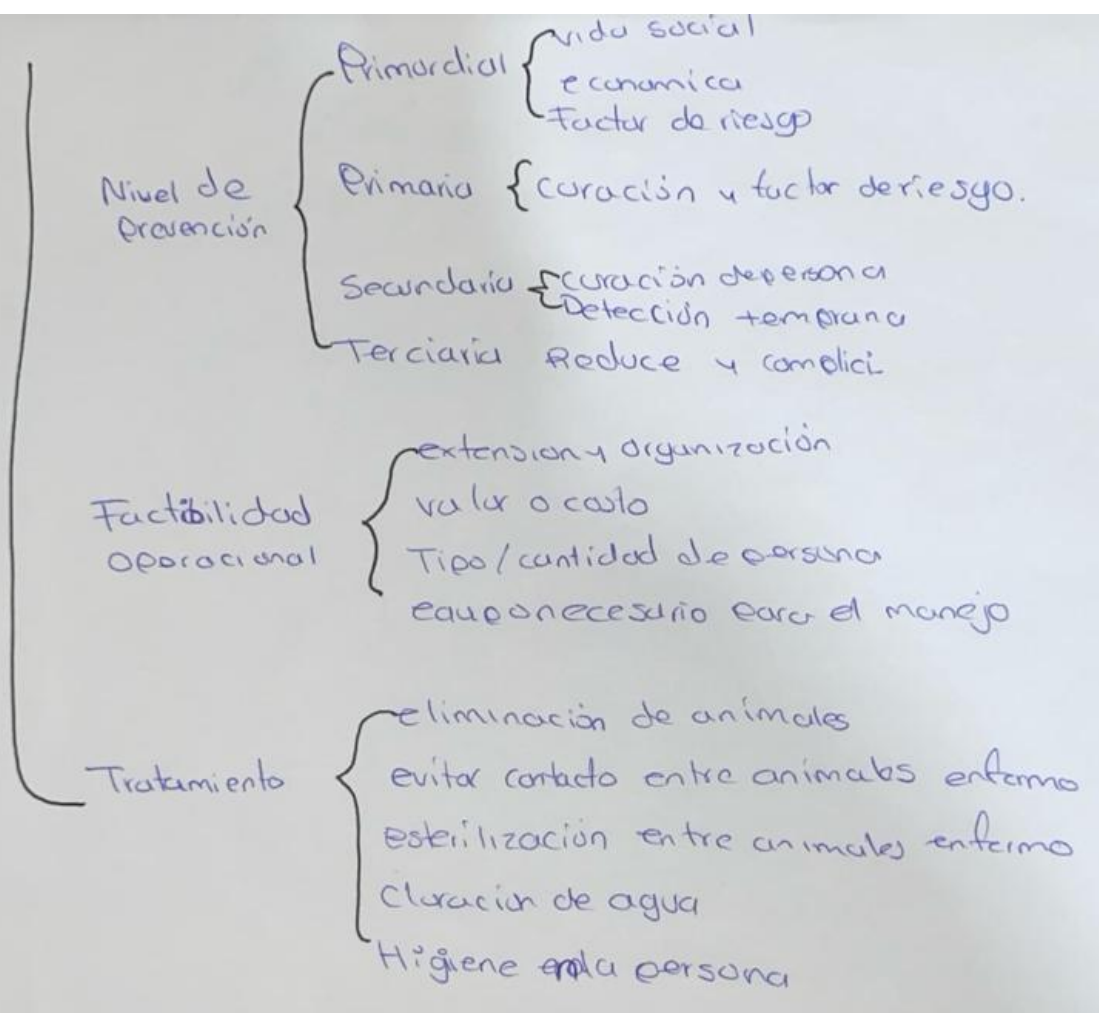 Primordial
vida social
economica
Factor de riesgo
Nivel de
prevención
Primaria
curación y factor de riesgo.
Secundaria
curación de persona
Detección temprana
Terciaria Reduce y complici
Factibilidad
operacional
extension y organización
valor o costo
Tipo/cantidad de persona
equipo necesario para el manejo
Tratamiento
eliminación de animales
evitar contacto entre animales enfermo
esterilización entre animales enfermo
Cloración de agua
Higiene en la persona